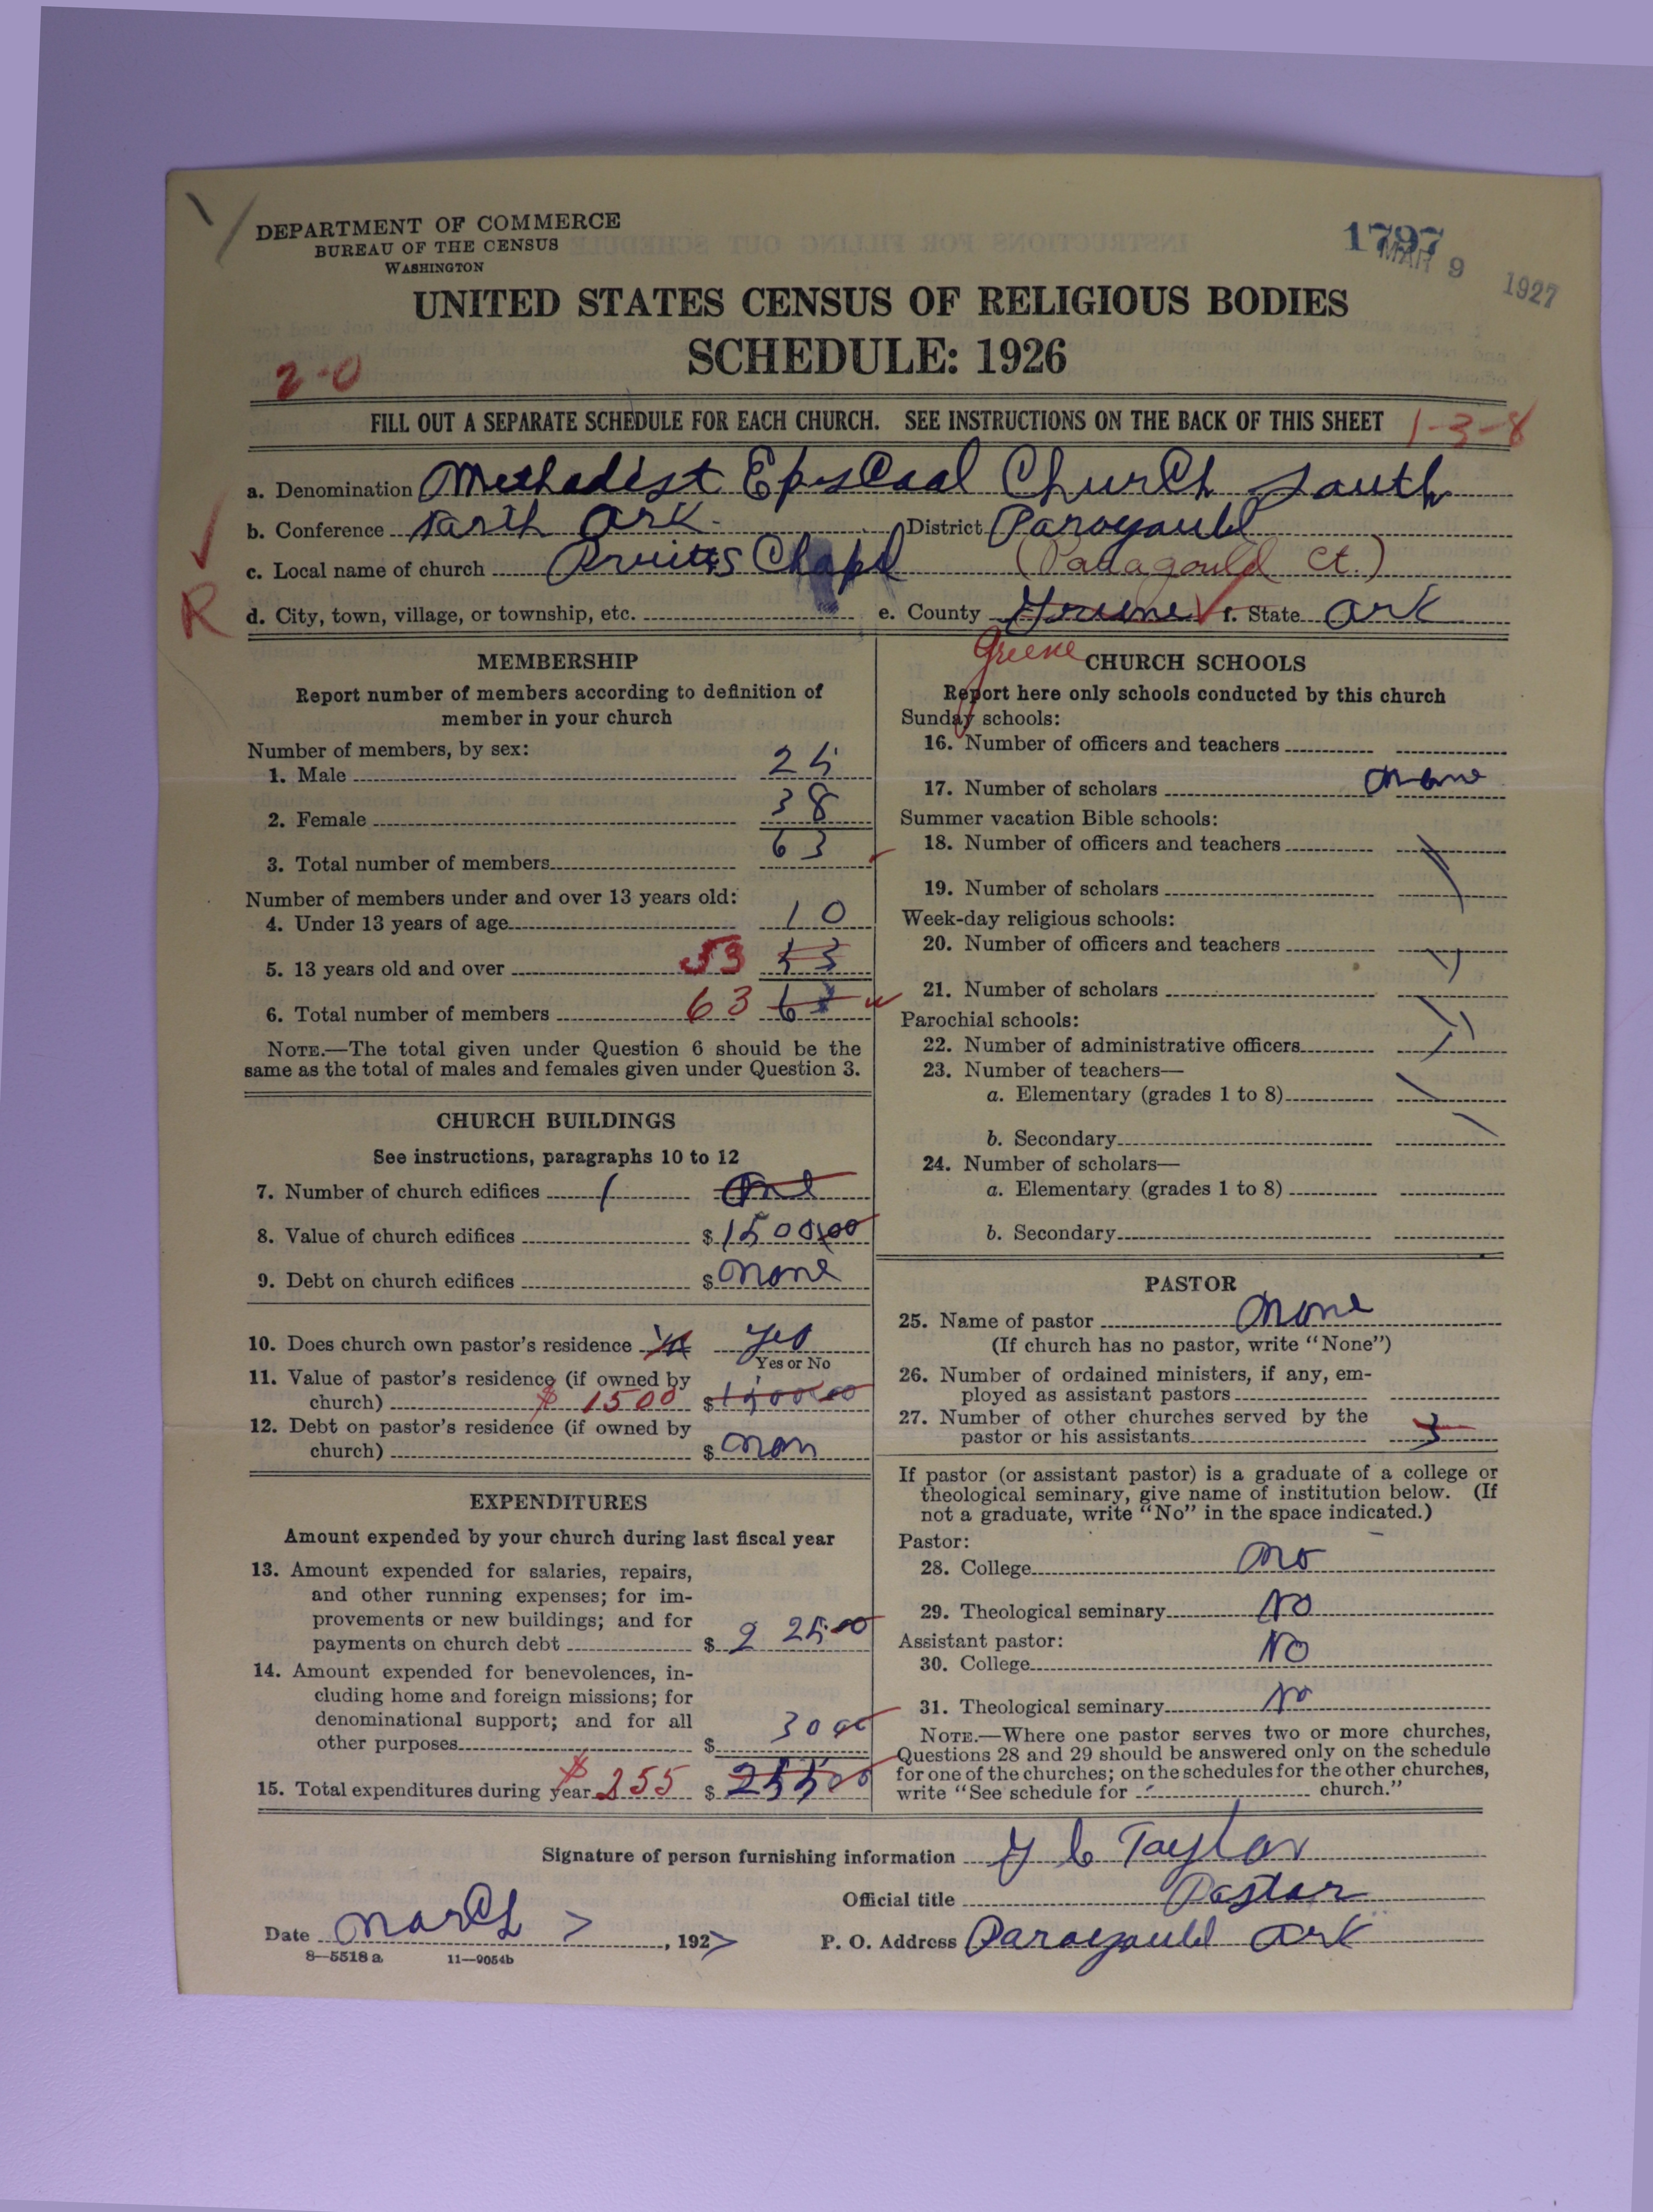 DEPARTMENT OF COMMERCE
BUREAU OF THE CENSUS
WASHINGTON
1797
MAR 9 1927
UNITED STATES CENSUS OF RELIGIOUS BODIES
SCHEDULE: 1926
2-0
FILL OUT A SEPARATE SCHEDULE FOR EACH CHURCH. SEE INSTRUCTIONS ON THE BACK OF THIS SHEET 1-3-8
a. Denomination Methodist Episcoal Church South
b. Conference North Ark. District Paragould
c. Local name of church Pruitts Chapel (Paragould Ct.)
R
d. City, town, village, or township, etc. e. County Greene f. State Ark
Greene
MEMBERSHIP
Report number of members according to definition of
member in your church
Number of members, by sex:
1. Male 25
2. Female 38
3. Total number of members 63
Number of members under and over 13 years old:
4. Under 13 years of age 10
5. 13 years old and over 53 53
6. Total number of members 63 63
NOTE.—The total given under Question 6 should be the
same as the total of males and females given under Question 3.
CHURCH BUILDINGS
See instructions, paragraphs 10 to 12
7. Number of church edifices 1 One
8. Value of church edifices $1500.00
9. Debt on church edifices $ None
10. Does church own pastor's residence Yes
Yes or No
11. Value of pastor's residence (if owned by
church) $ 1500 $1500.00
12. Debt on pastor's residence (if owned by
church) $ Non
EXPENDITURES
Amount expended by your church during last fiscal year
13. Amount expended for salaries, repairs,
and other running expenses; for im-
provements or new buildings; and for
payments on church debt $ 225 00
14. Amount expended for benevolences, in-
cluding home and foreign missions; for
denominational support; and for all
other purposes $ 30 00
15. Total expenditures during year $255 $ 255 00
CHURCH SCHOOLS
Report here only schools conducted by this church
Sunday schools:
16. Number of officers and teachers
17. Number of scholars None
Summer vacation Bible schools:
18. Number of officers and teachers
19. Number of scholars
Week-day religious schools:
20. Number of officers and teachers
21. Number of scholars
Parochial schools:
22. Number of administrative officers
23. Number of teachers—
a. Elementary (grades 1 to 8)
b. Secondary
24. Number of scholars—
a. Elementary (grades 1 to 8)
b. Secondary
PASTOR
25. Name of pastor None
(If church has no pastor, write "None")
26. Number of ordained ministers, if any, em-
ployed as assistant pastors
27. Number of other churches served by the
pastor or his assistants 3
If pastor (or assistant pastor) is a graduate of a college or
theological seminary, give name of institution below. (If
not a graduate, write "No" in the space indicated.)
Pastor:
28. College No
29. Theological seminary No
Assistant pastor:
30. College No
31. Theological seminary No
NOTE.—Where one pastor serves two or more churches,
Questions 28 and 29 should be answered only on the schedule
for one of the churches; on the schedules for the other churches,
write "See schedule for church."
Signature of person furnishing information Y C Taylor
Official title Pastor
Date March 7, 1927 P. O. Address Paragould Ark
8—5518 a 11—9054b